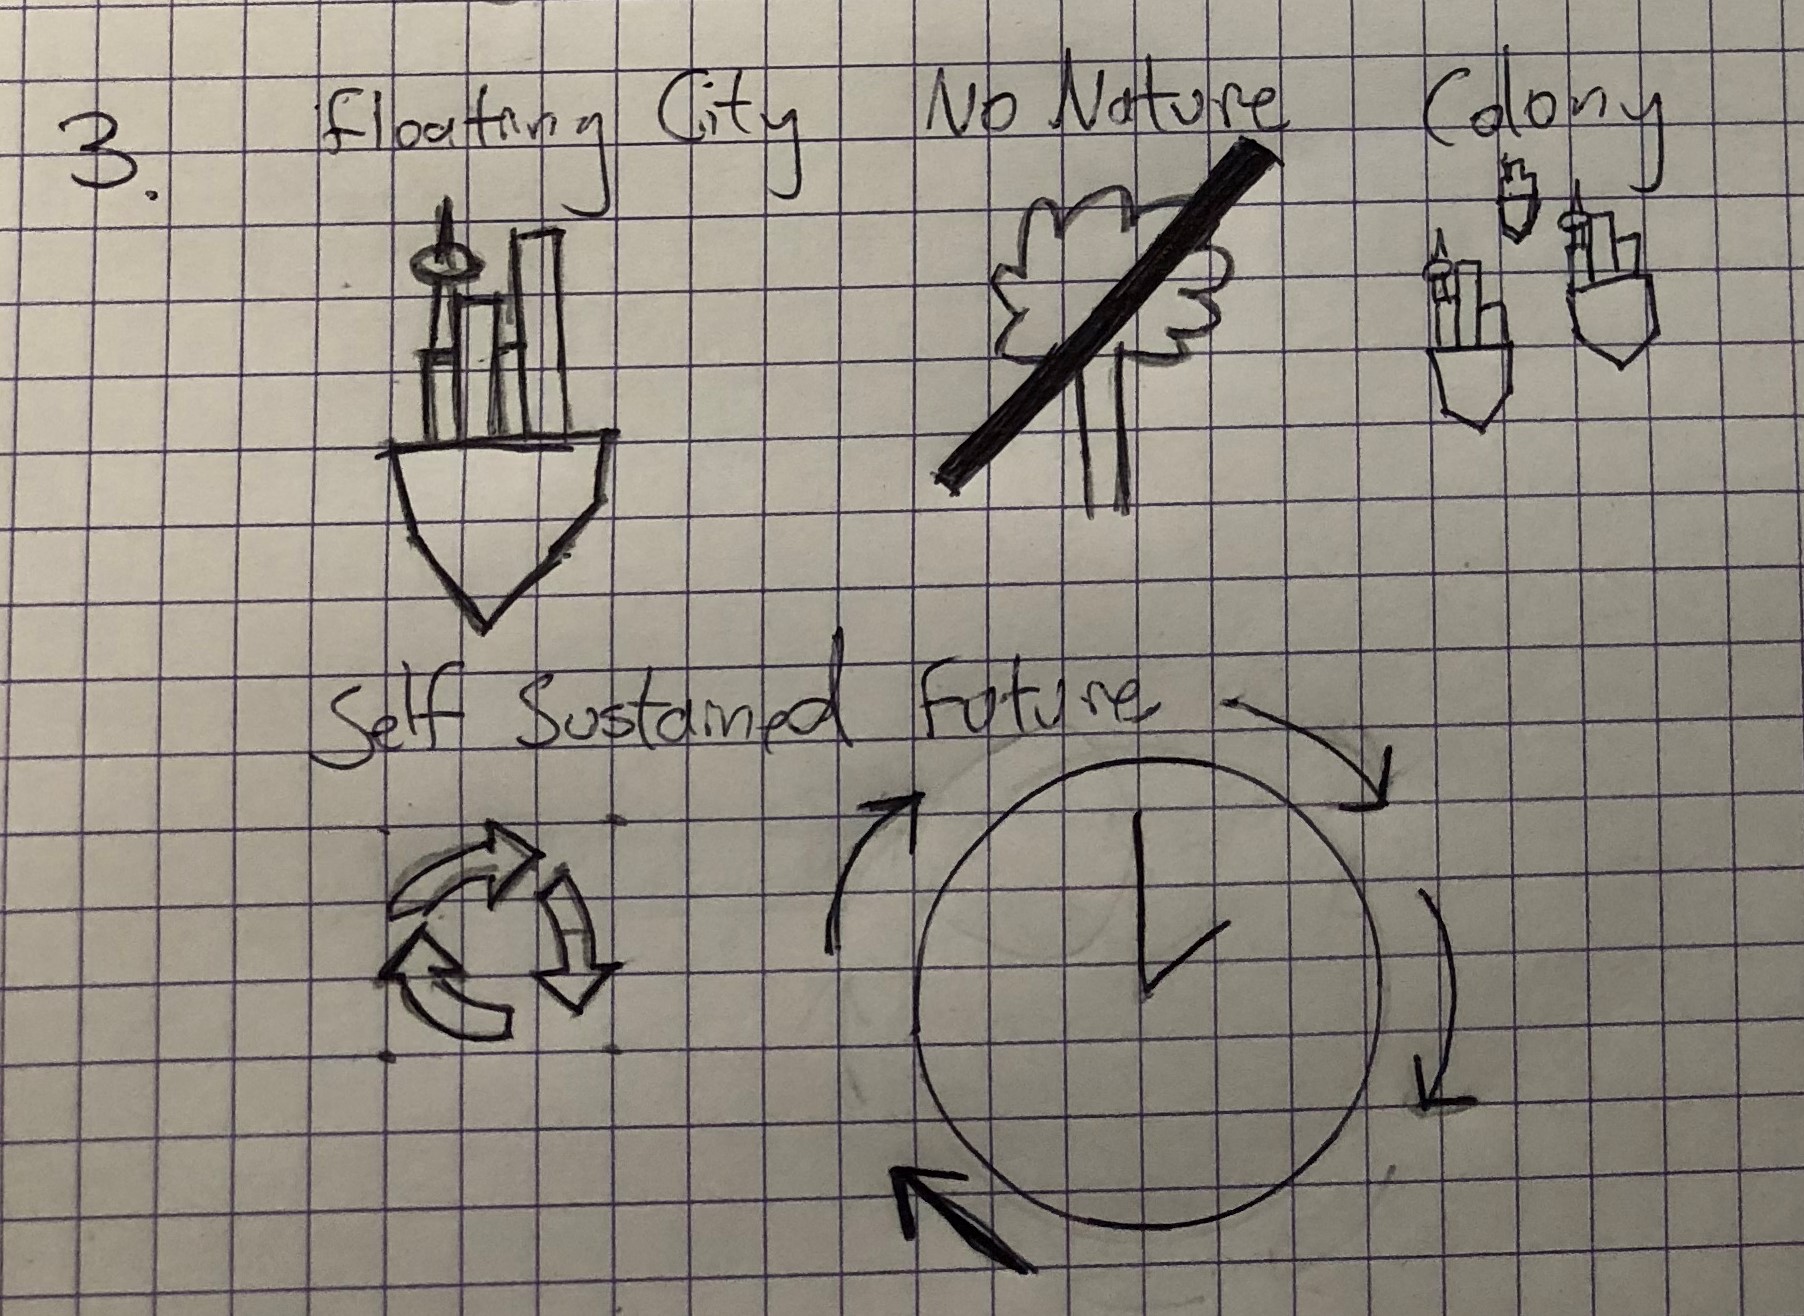 3. Floating City No Nature Colony
Self Sustained Future